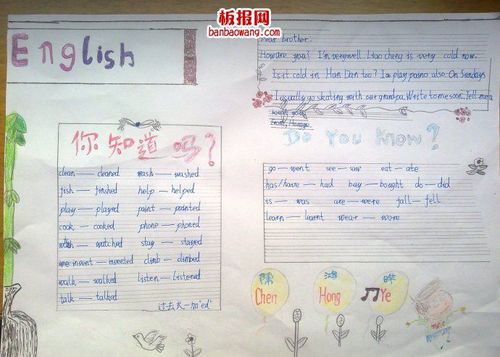 板报网
banbaowang.com
English
Dear brother:
How are you? I'm very well. Liao cheng is very cold now.
Is it cold in Han Dan too? I play piano also. On Sendays
I usually go skating with our grandpa. Write to me soon.
你知道吗?
clean — cleaned wash — washed
fish — finshed help — helped
play — played paint — painted
cook — cooked phone — phoned
watch — watched stay — stayed
invent — invented climb — climbed
walk — walked listen — listened
talk — talked
过去式一加"ed"
Do you know?
go — went see — saw eat — ate
has/have — had buy — bought do — did
is — was are — were fall — fell
learn — learnt wear — wore
陈 鸿 晔
Chen Hong Ye